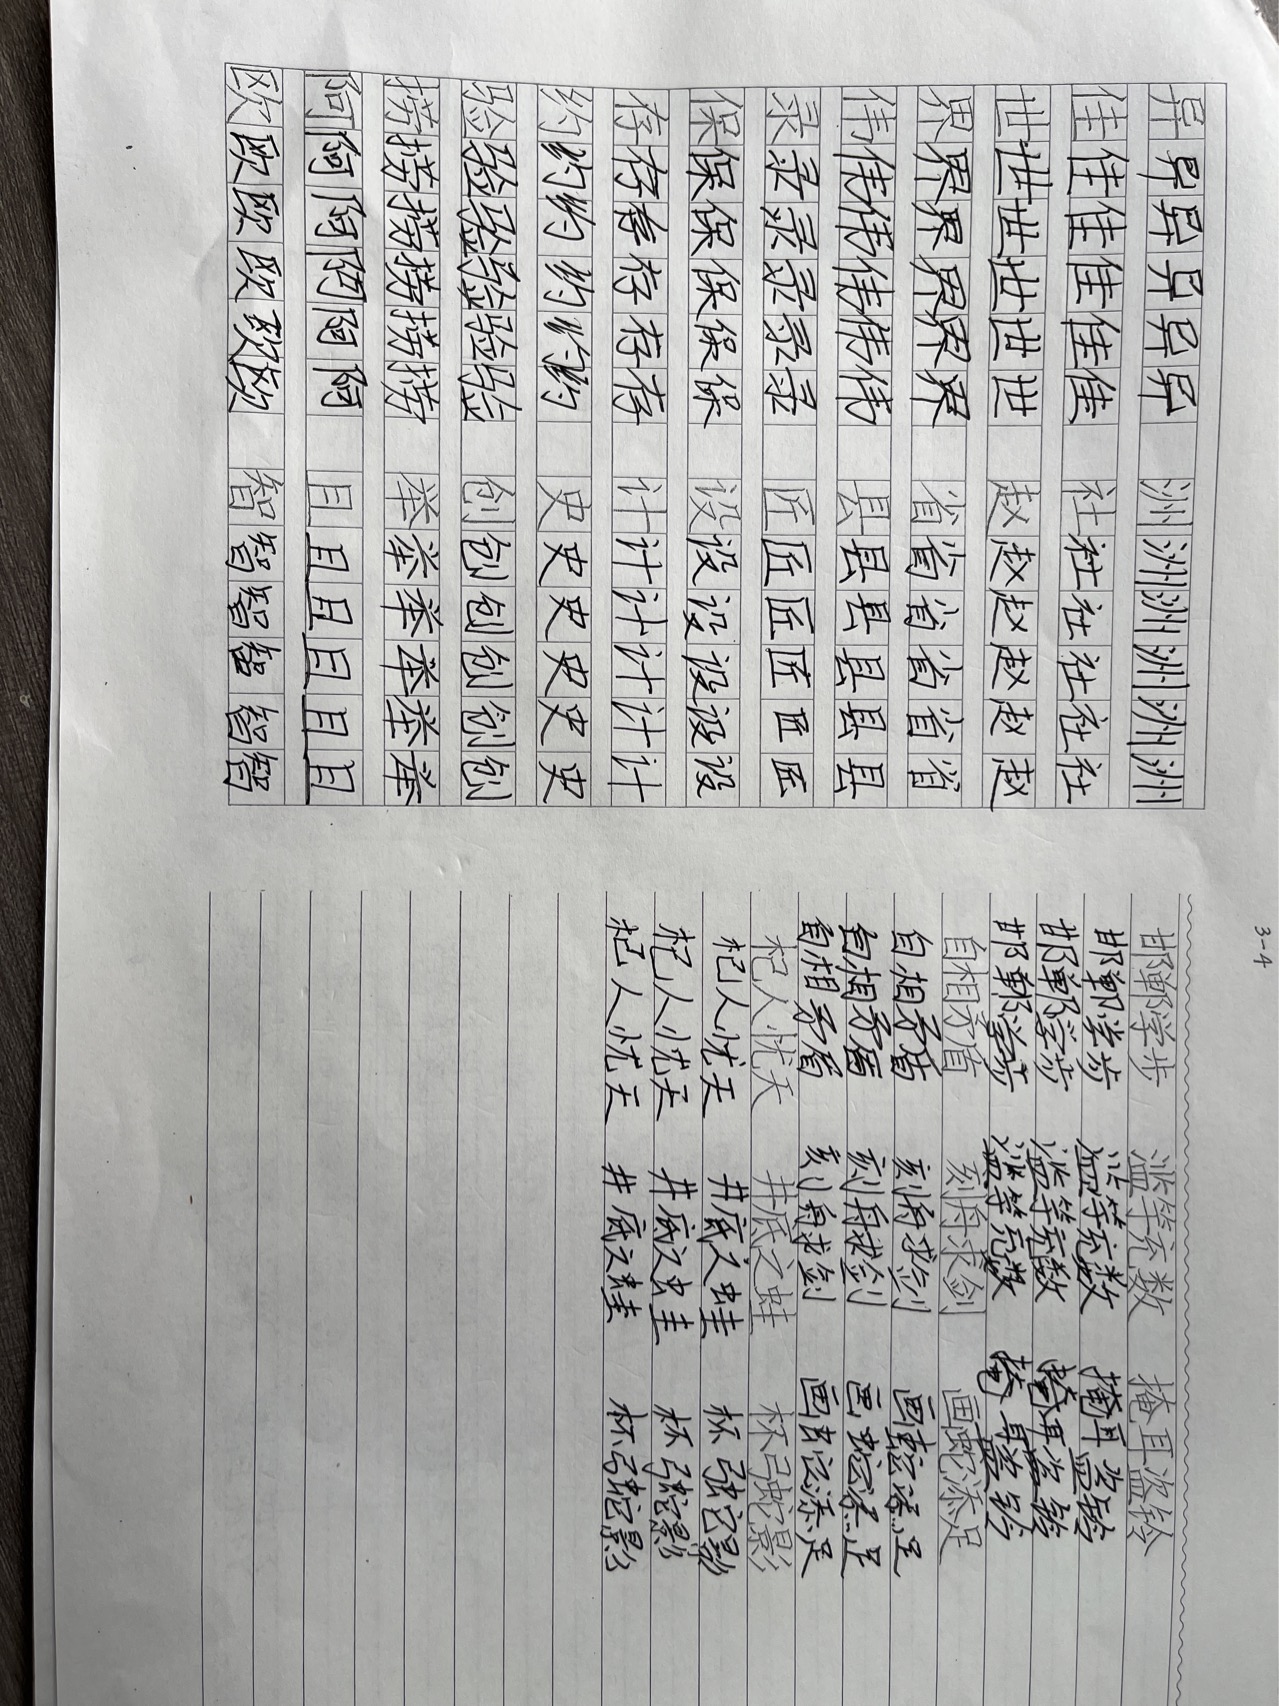 异异异异异异 洲洲洲洲洲洲
佳佳佳佳佳佳 社社社社社社
世世世世世世 赵赵赵赵赵赵
界界界界界界 省省省省省省
伟伟伟伟伟伟 县县县县县县
录录录录录录 匠匠匠匠匠匠
保保保保保保 设设设设设设
存存存存存存 计计计计计计
约约约约约约 史史史史史史
验验验验验验 创创创创创创
捞捞捞捞捞捞 举举举举举举
阿阿阿阿阿阿 且且且且且且
欧欧欧欧欧欧 智智智智智智
3-4
邯郸学步 滥竽充数 掩耳盗铃
邯郸学步 滥竽充数 掩耳盗铃
邯郸学步 滥竽充数 掩耳盗铃
邯郸学步 滥竽充数 掩耳盗铃
自相矛盾 刻舟求剑 画蛇添足
自相矛盾 刻舟求剑 画蛇添足
自相矛盾 刻舟求剑 画蛇添足
自相矛盾 刻舟求剑 画蛇添足
杞人忧天 井底之蛙 杯弓蛇影
杞人忧天 井底之蛙 杯弓蛇影
杞人忧天 井底之蛙 杯弓蛇影
杞人忧天 井底之蛙 杯弓蛇影